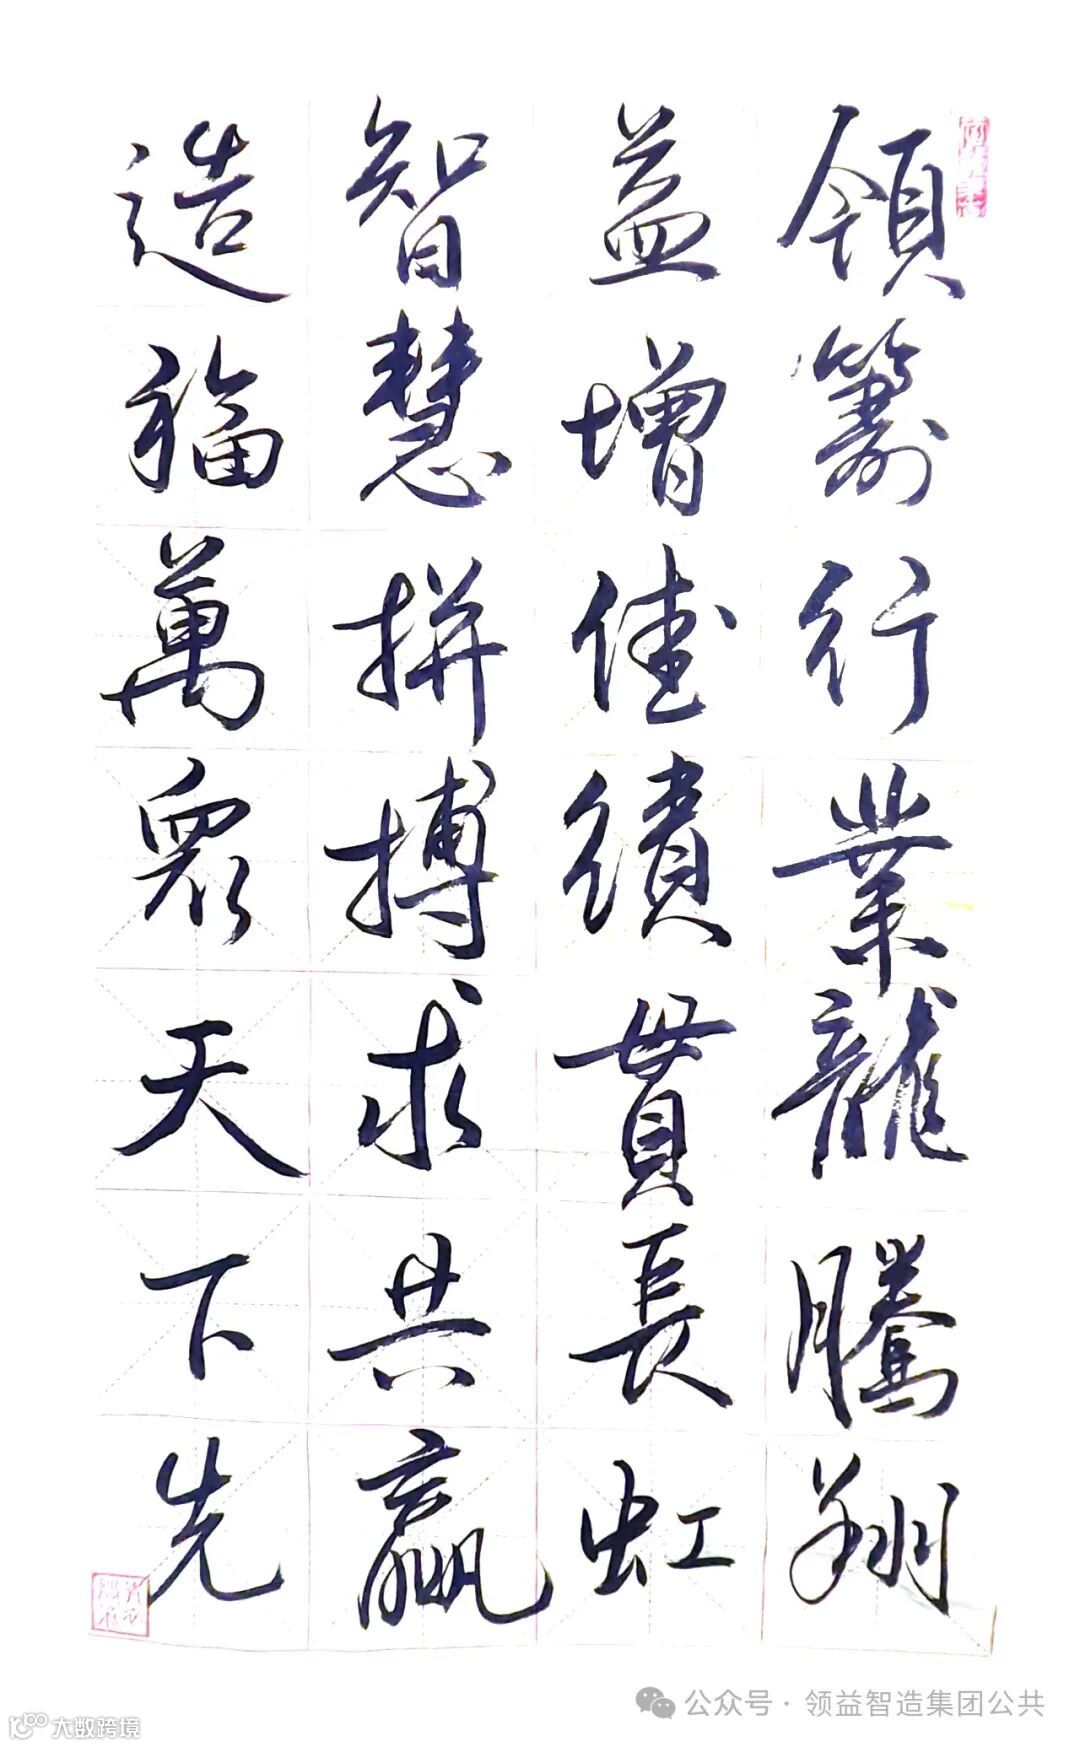 領籌行業龍騰翔
益增佳績貫長虹
智慧拼搏求共贏
造福萬眾天下先
公众号 · 领益智造集团公共
大数跨境